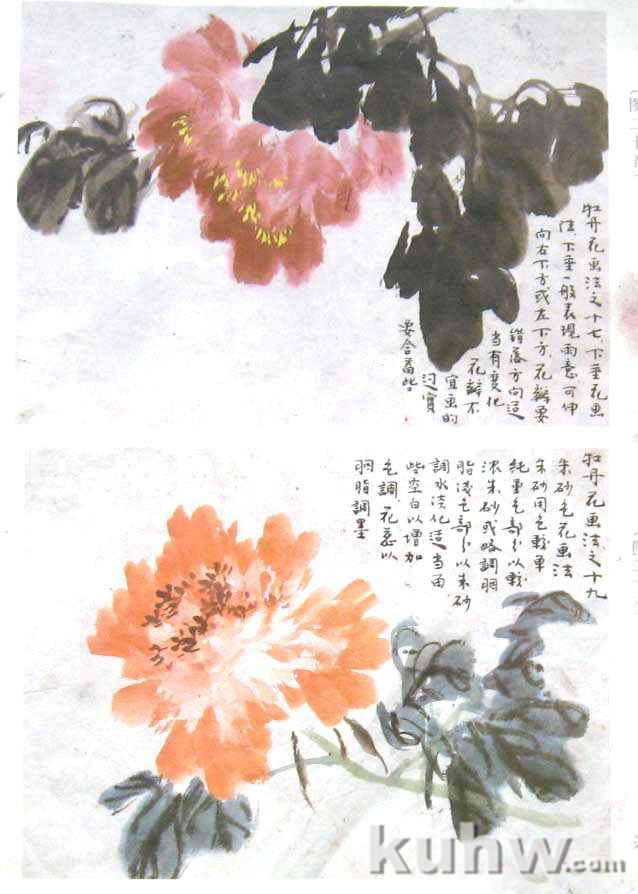 牡丹花画法之十七、下垂花画
法下垂一般表现雨意可伸
向右下方或左下方、花瓣要
错落方向适
当有变化
花瓣不
宜画的
过实
要含蓄些
牡丹花画法之十九
朱砂色花画法
朱砂用色较单
纯重色部分以较
浓朱砂或略调胭
脂浅色部分以朱砂
調水淡化适当留
些空白以增加
色調、花蕊以
胭脂調墨
kuhw.com